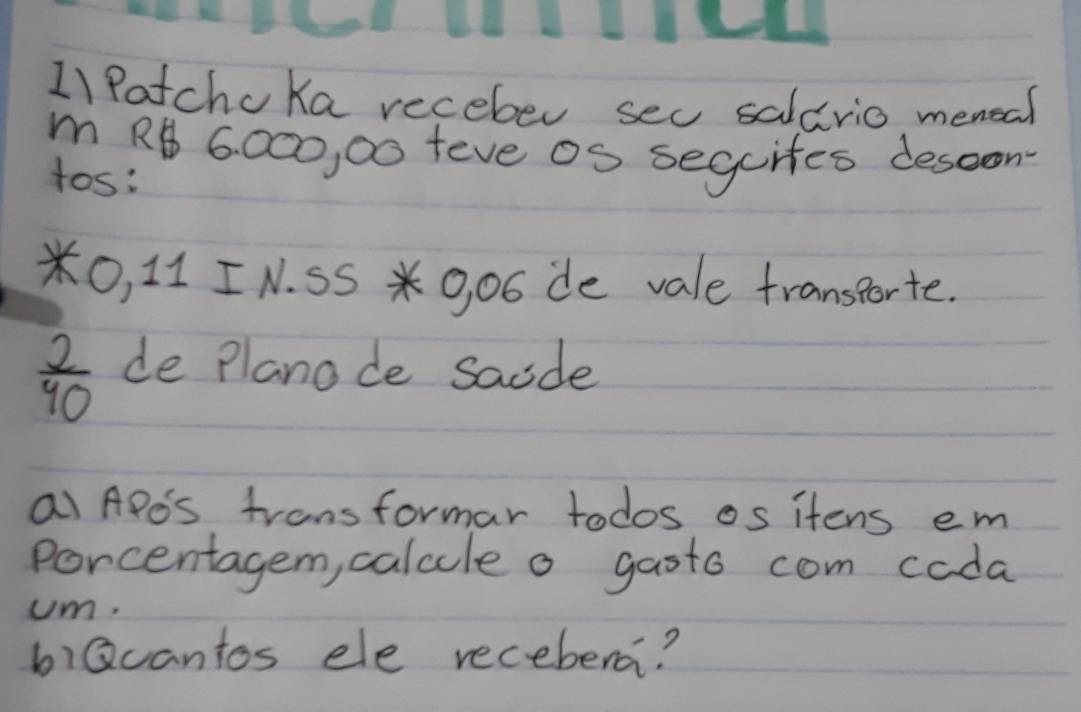 1) Patchcka recebeu seu salário mensal
m R$ 6.000,00 teve os seguites descon-
tos:
*0,11 I N.SS * 0,06 de vale transporte.
2/40 de Plano de Saúde
a) Após transformar todos os ítens em
Porcentagem, calcule o gasto com cada
um.
b) Quantos ele receberá?